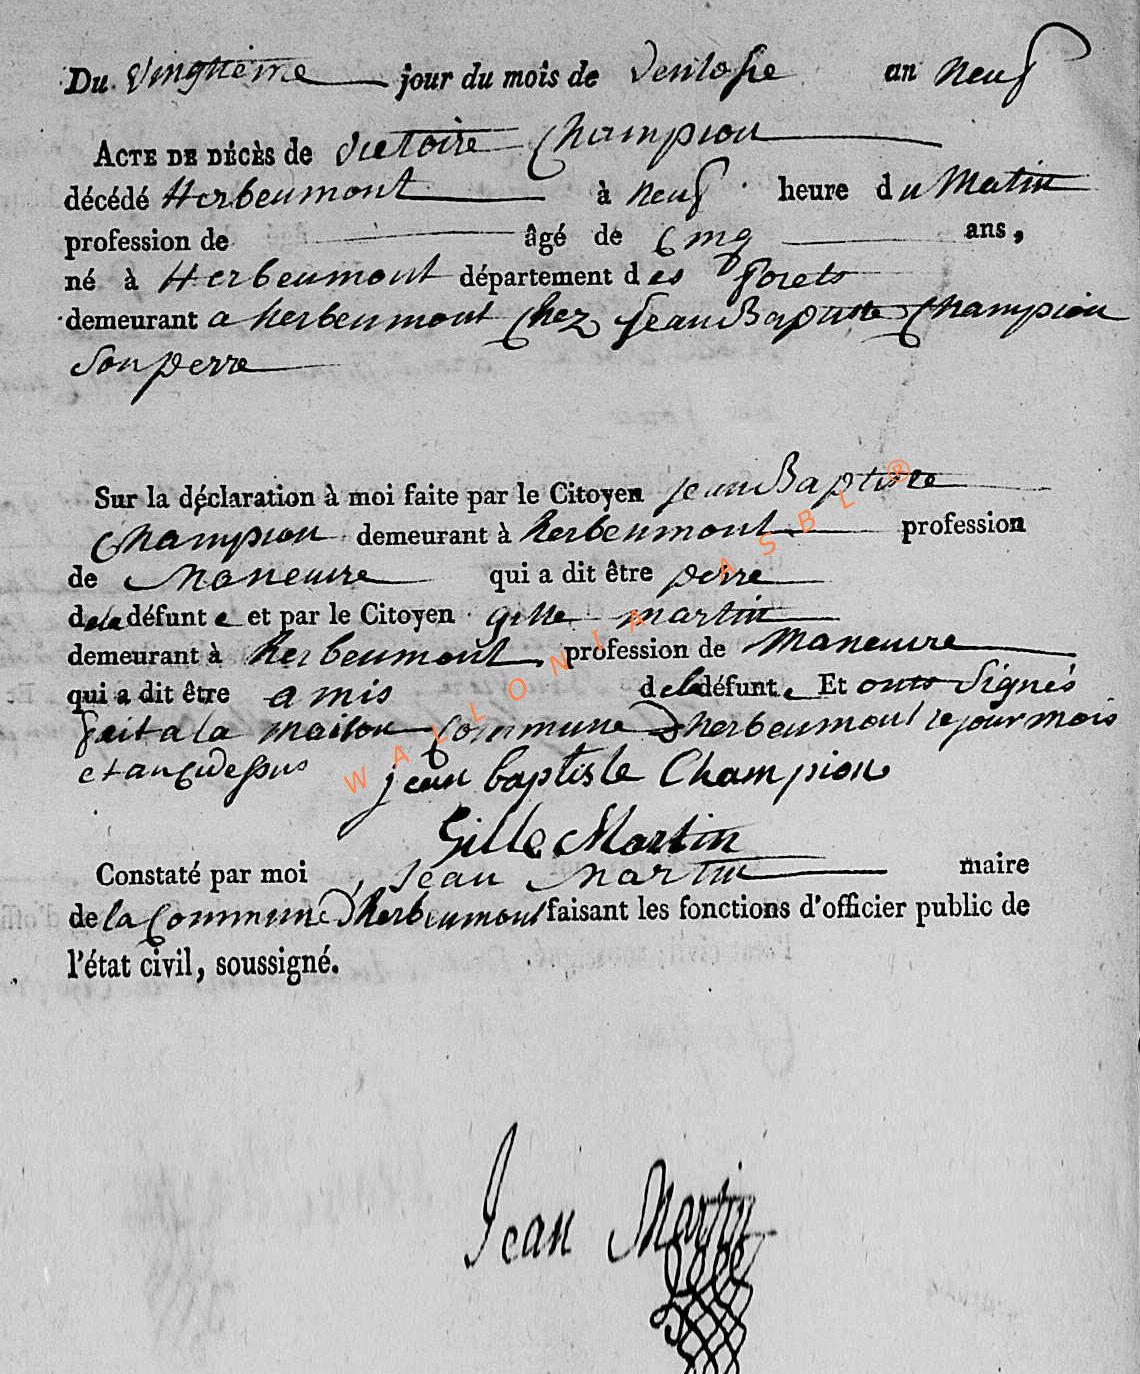 Du vingtieme jour du mois de ventosse an neuf
ACTE DE DÉCÈS de victoire Champion
décédé Herbeumont à neuf heure du Matin
profession de âgé de Cinq ans,
né à Herbeumont département des forets
demeurant a herbeumont Chez Jean Baptiste Champion
son perre
Sur la déclaration à moi faite par le Citoyen jean Baptiste
Champion demeurant à herbeumont profession
de Maneuvre qui a dit être perre
de la défunte et par le Citoyen gille martin
demeurant à herbeumont profession de Maneuvre
qui a dit être amis de la défunte Et onts Signés
fait a la maison Commune Dherbeumont le jour mois
et an Cydessus jean baptiste Champion
Gille Martin
Constaté par moi Jean Martin maire
de la Commune Dherbeumont faisant les fonctions d'officier public de
l'état civil, soussigné.
Jean Martin
WALLONIA ASBL ®